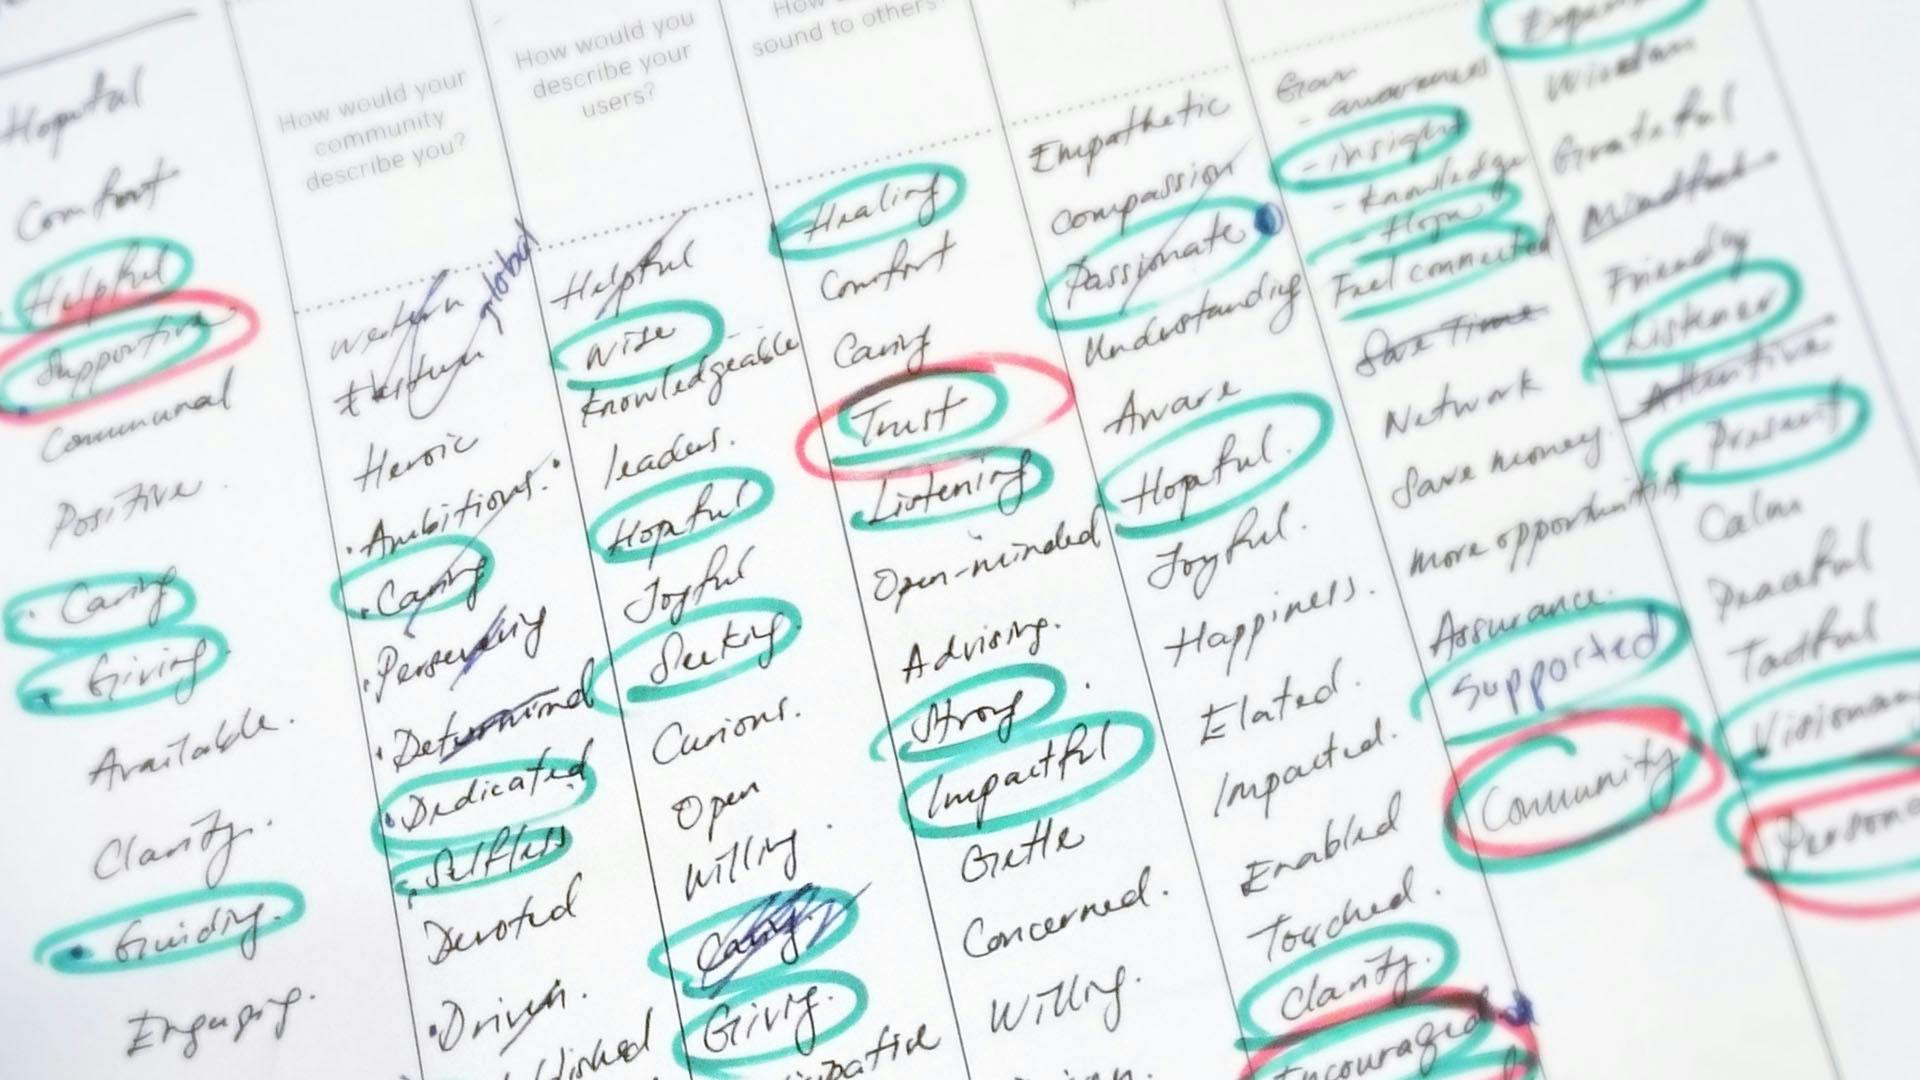 How would your
community
describe you?
How would you
describe your
users?
How
sound to others?
Hopeful
Comfort
Helpful
Supportive
Communal
Positive
Caring
Giving
Available.
Clarity.
Guiding.
Engaging.
Western
Eastern
global
Heroic
Ambitious.
Caring
Persevering
Determined
Dedicated
Selfless
Devoted
Driven.
Helpful
Wise
Knowledgeable
leaders.
Hopeful
Joyful
Seeking.
Curious.
Open
Willing.
Caring
Giving.
Healing
Comfort
Caring
Trust
Listening
Open-minded
Advising.
Strong
Impactful
Gentle
Concerned.
Willing.
Empathetic
Compassion
Passionate
Understanding
Aware
Hopeful.
Joyful.
Happiness.
Elated.
Impacted.
Enabled
Touched.
Clarity.
Encouraged
Grow
- awareness
- insight
- Knowledge
- Hope
Feel connected
Save Time
Network
Save money.
more opportunities
Assurance.
Supported
Community
Wisdom
Grateful
Mindful
Friendly
Listener
Attentive
Present
Calm
Peaceful
Tactful